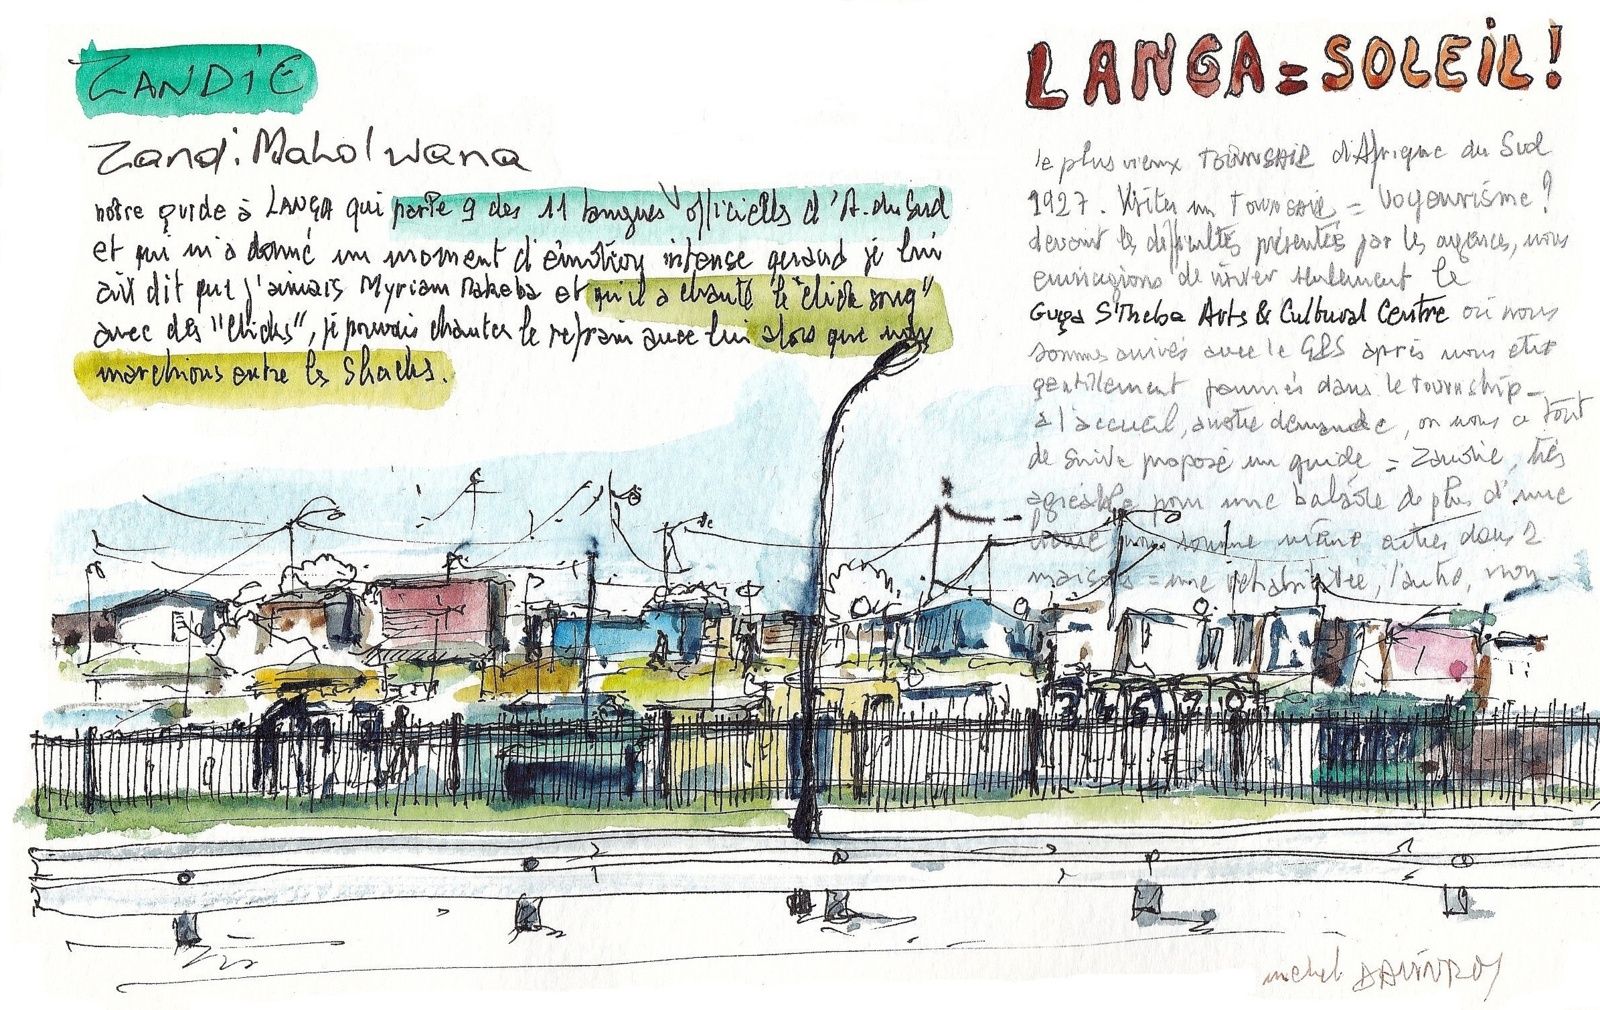 ZANDIE
Zandi Maholwana
notre guide à LANGA qui parle 9 des 11 langues officielles d'A. du Sud
et qui m'a donné un moment d'émotion intense quand je lui
ait dit que j'aimais Myriam Makeba et qu'il a chanté le "click song"
avec des "clicks", je pouvais chanter le refrain avec lui alors que nous
marchions entre les Shacks.
LANGA = SOLEIL!
le plus vieux d'Afrique du Sud
1927. Visiter un = Voyeurisme?
devant les difficultés présentées par les agences, nous
envisagions de visiter seulement le
Guga S'Theba Arts & Cultural Centre où nous
sommes arrivés avec le GPS après nous être
gentillement paumés dans le township -
à l'accueil, à notre demande, on nous a tout
de suite proposé un guide = Zandie, très
agréable pour une balade de plus d'une
heure, nous somme même entrés dans 2
maisons = une réhabilitée, l'autre, non -
3 4 6 7 8
michel DAVINROY